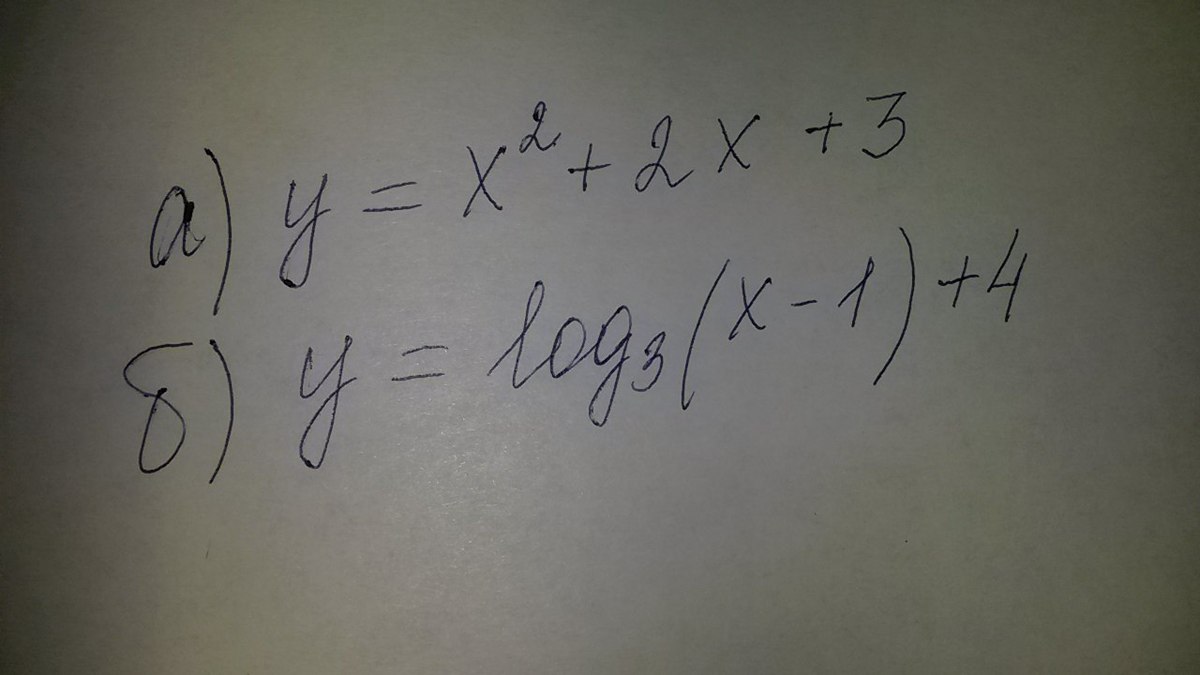 а) y = x² + 2x + 3
б) y = log₃(x - 1) + 4